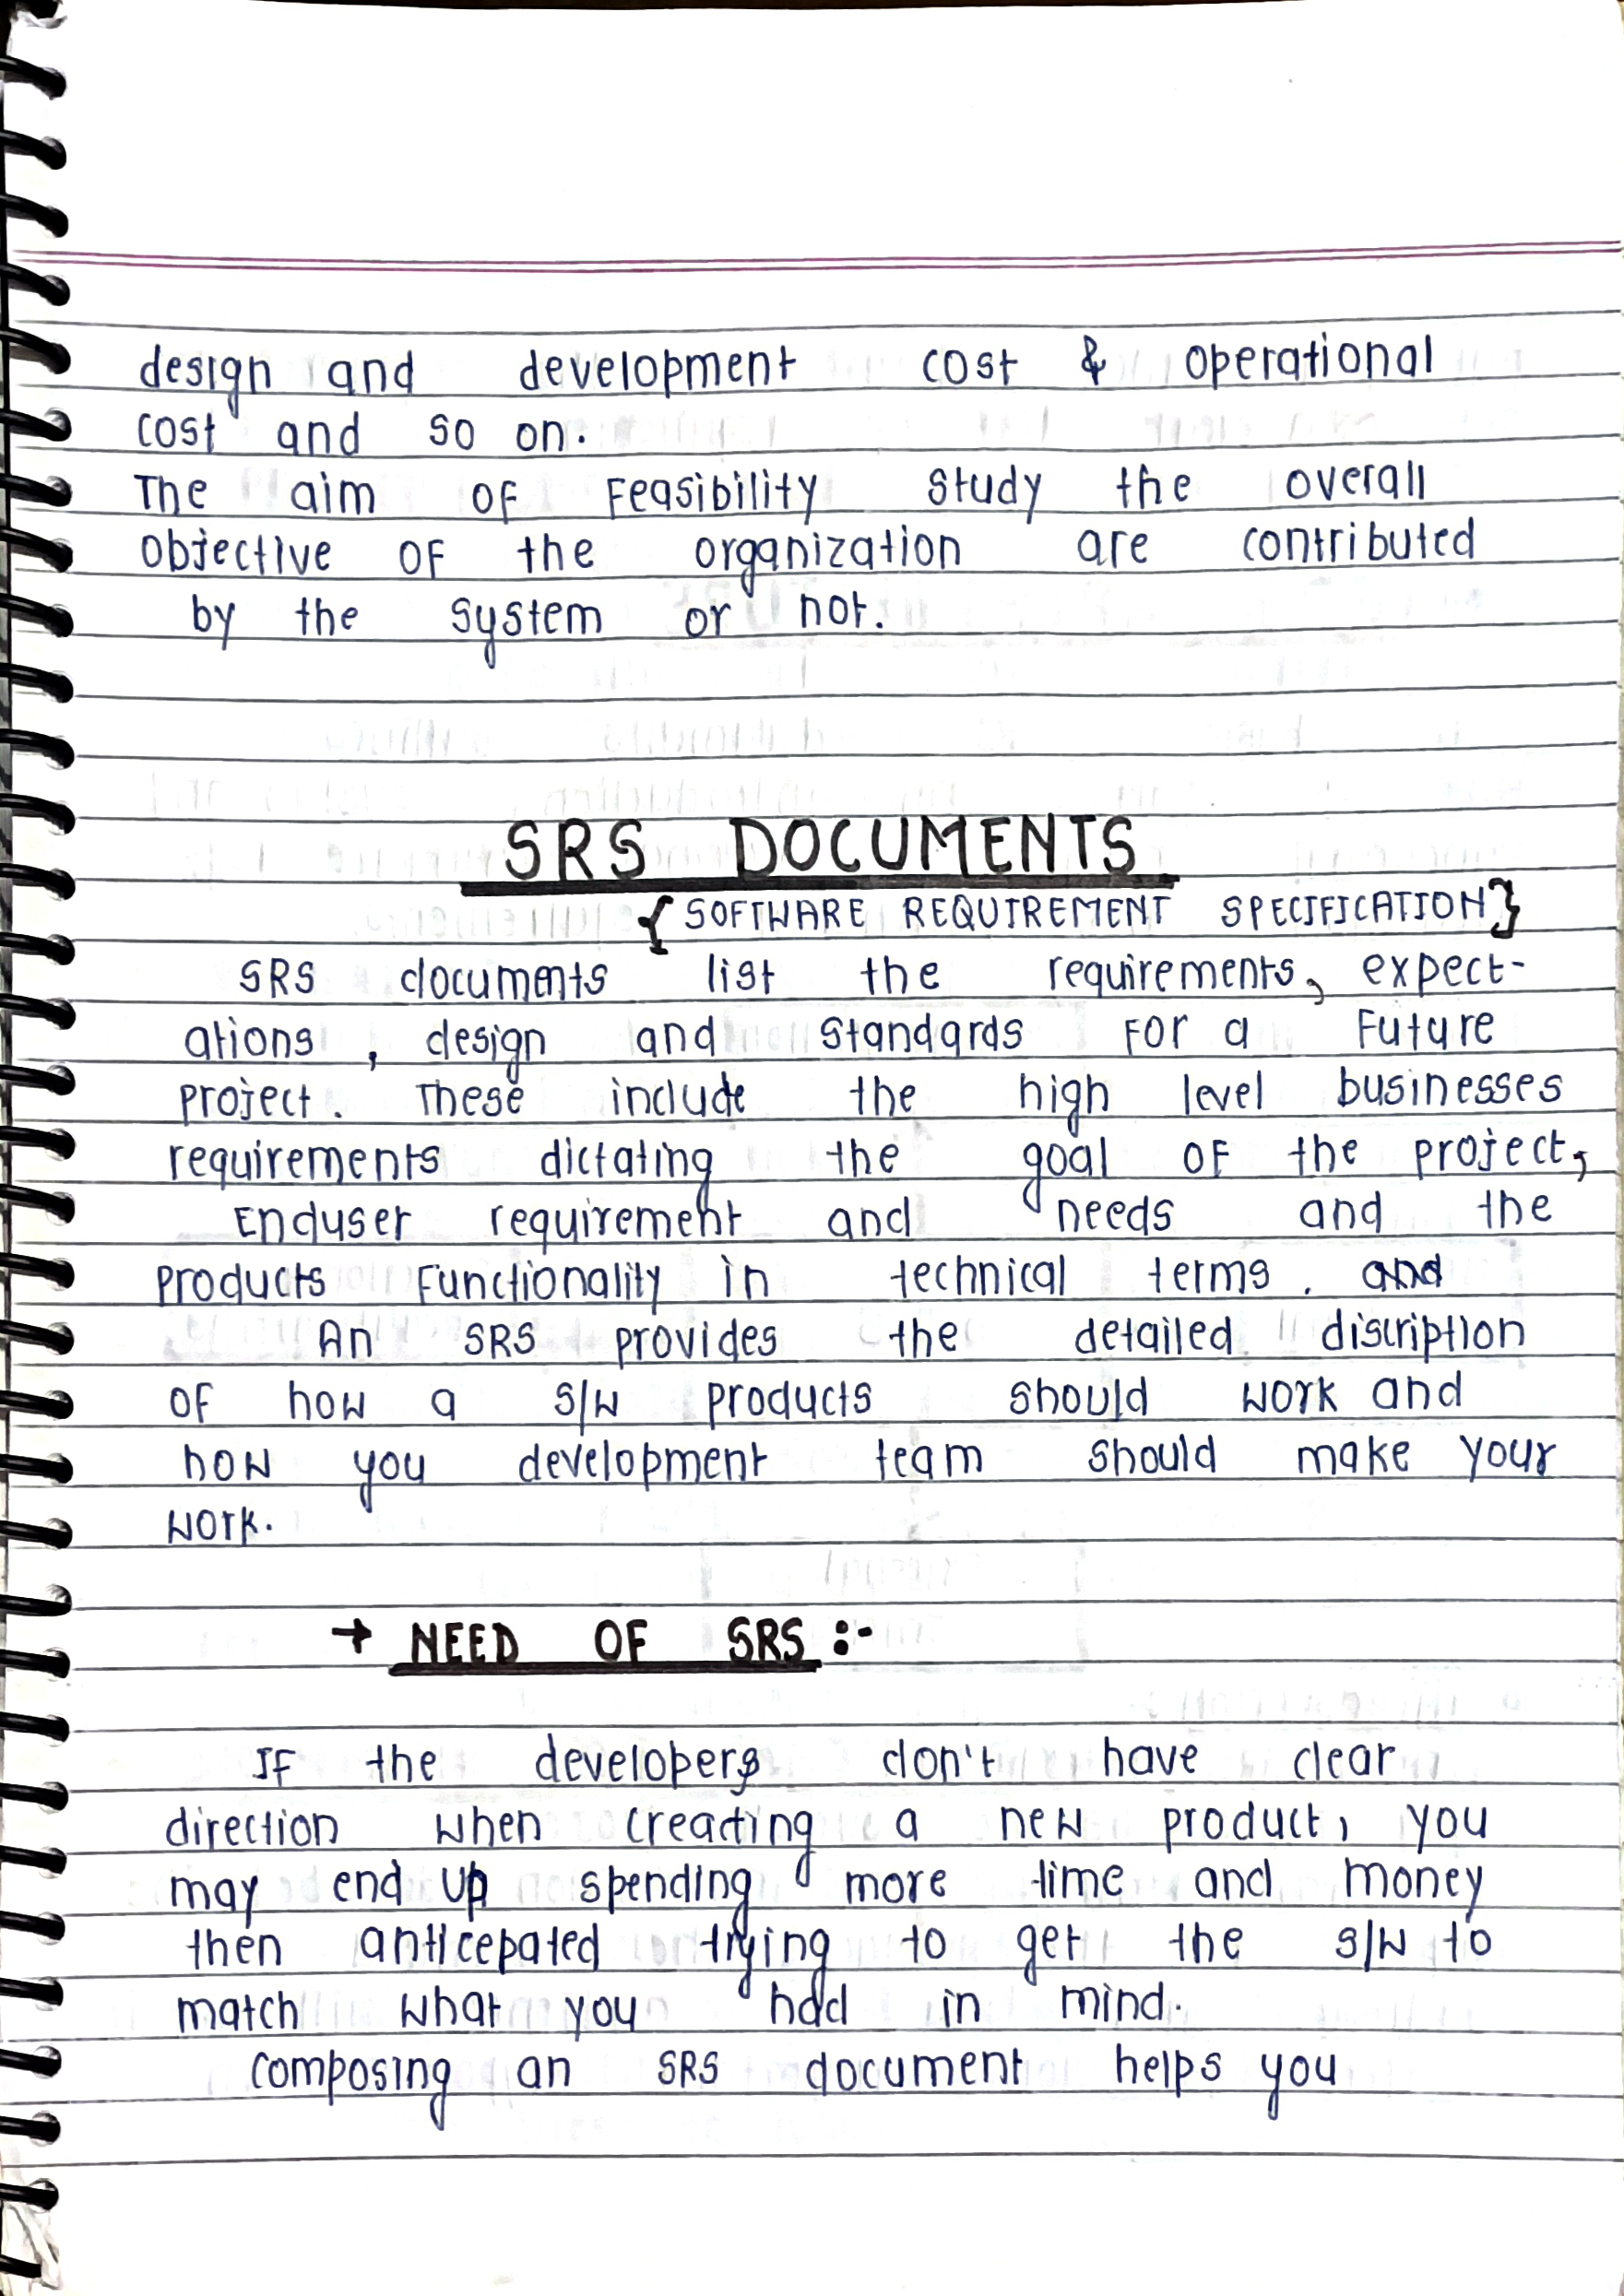 design and development cost & operational
cost and so on.
The aim of Feasibility study the overall
objective of the organization are contributed
by the system or not.
SRS DOCUMENTS
{SOFTWARE REQUIREMENT SPECIFICATION}
SRS documents list the requirements, expect-
ations, design and standards for a Future
project. These include the high level businesses
requirements dictating the goal of the project,
Enduser requirement and needs and the
products functionality in technical terms. and
An SRS provides the detailed discription
of how a S/W products should work and
how you development team should make your
work.
→ NEED OF SRS :-
If the developers don't have clear
direction when creacting a new product, you
may end up spending more time and money
then anticepated trying to get the S/W to
match what you had in mind.
composing an SRS document helps you